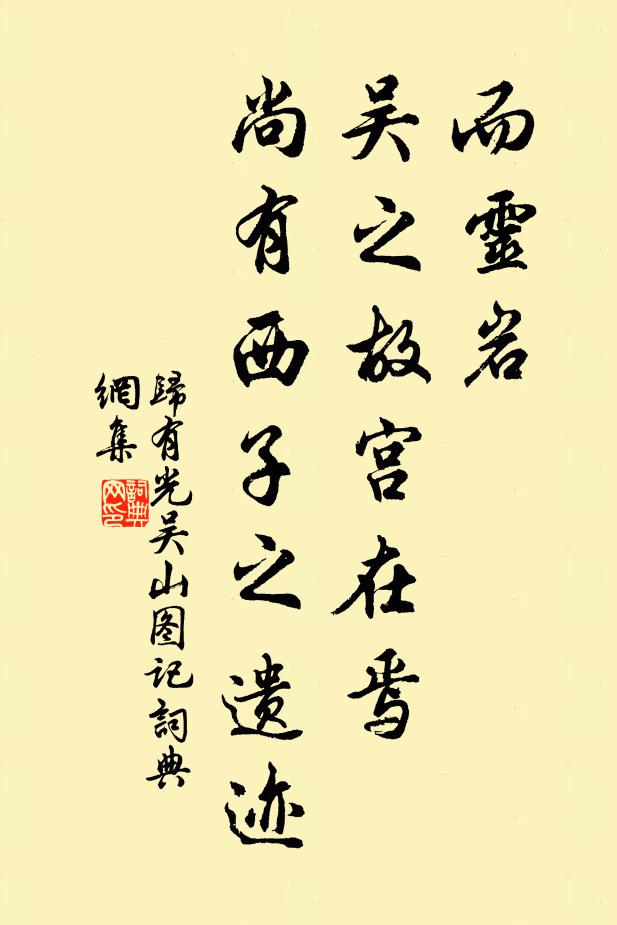 而靈岩
吴之故宫在焉
尚有西子之遗迹
歸有光吴山图记詞典
網集
詞典
网印